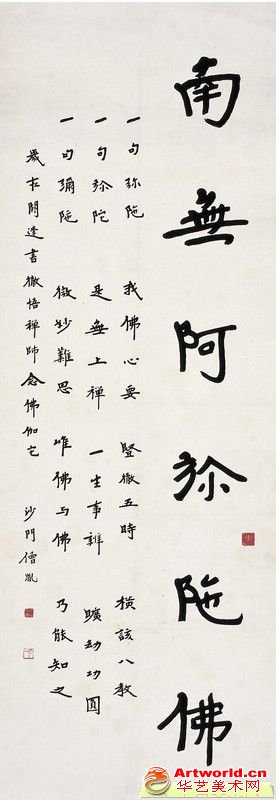 南無阿弥陀佛
一句弥陀 我佛心要 竪徹五時 橫該八教
一句弥陀 是無上禪 一生事辦 曠劫功圓
一句彌陀 微妙難思 唯佛与佛 乃能知之
歲在閼逢書徹悟禪師念佛伽它 沙門僧胤
Artworld.cn
华艺美术网